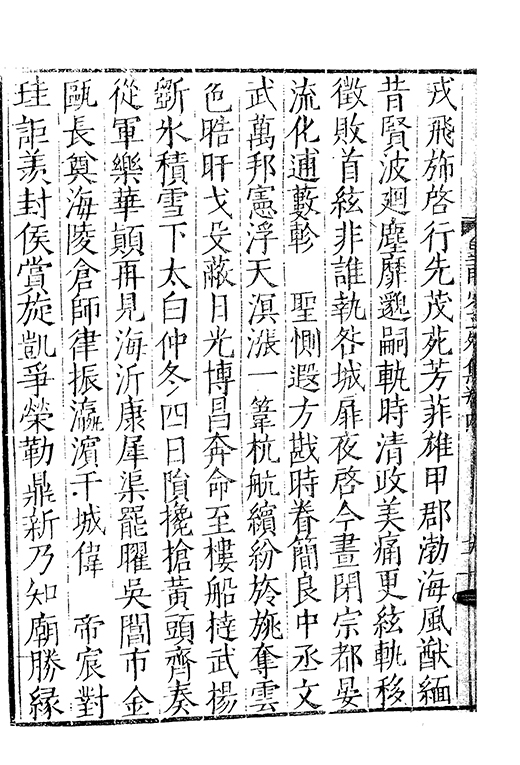 戎飛斾啓行先茂苑芳菲雄甲郡渤海風猷緬
昔賢波廻塵靡邈嗣軌時清政美痛更絃軌移
徵敗首絃非誰執咎城扉夜啓今晝閉宗都晏
流化逋藪軫　聖惻遐方戡時眷簡良中丞文
武萬邦憲浮天溟漲一葦杭航繽紛於旐奪雲
色晧旰戈殳蔽日光博昌奔命至樓船撻武揚
斷氷積雪下太白仲冬四日隕攙搶黃頭齊奏
從軍樂華顛再見海沂康犀渠罷曜吳閶市金
甌長奠海陵倉師律振瀛濵干城偉　帝宸對
珪詎羨封侯賞旋凱爭榮勒鼎新乃知廟勝縁